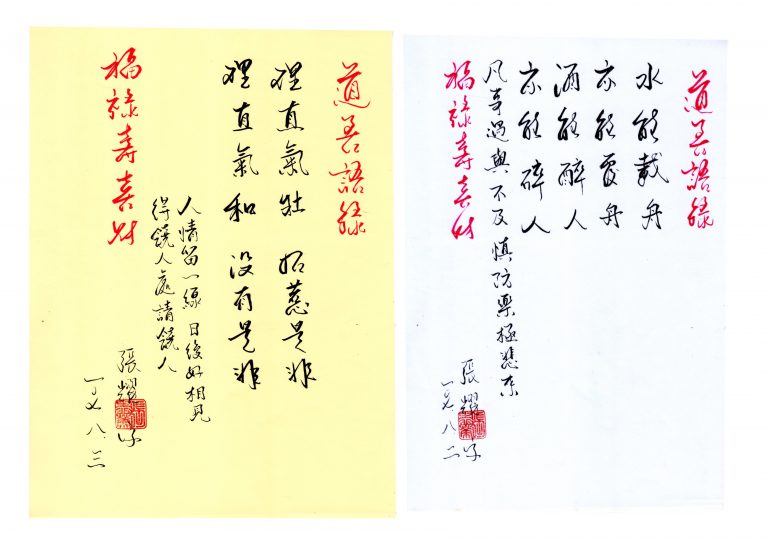 道善語錄
水能載舟
亦能覆舟
酒能醉人
亦能碎人
凡事過與不及 慎防樂極悲來
福祿壽喜財
張耀
一〇七 八 二
道善語錄
理直氣壯 招惹是非
理直氣和 沒有是非
人情留一線 日後好相見
得饒人處請饒人
福祿壽喜財
張耀
一〇七 八.三